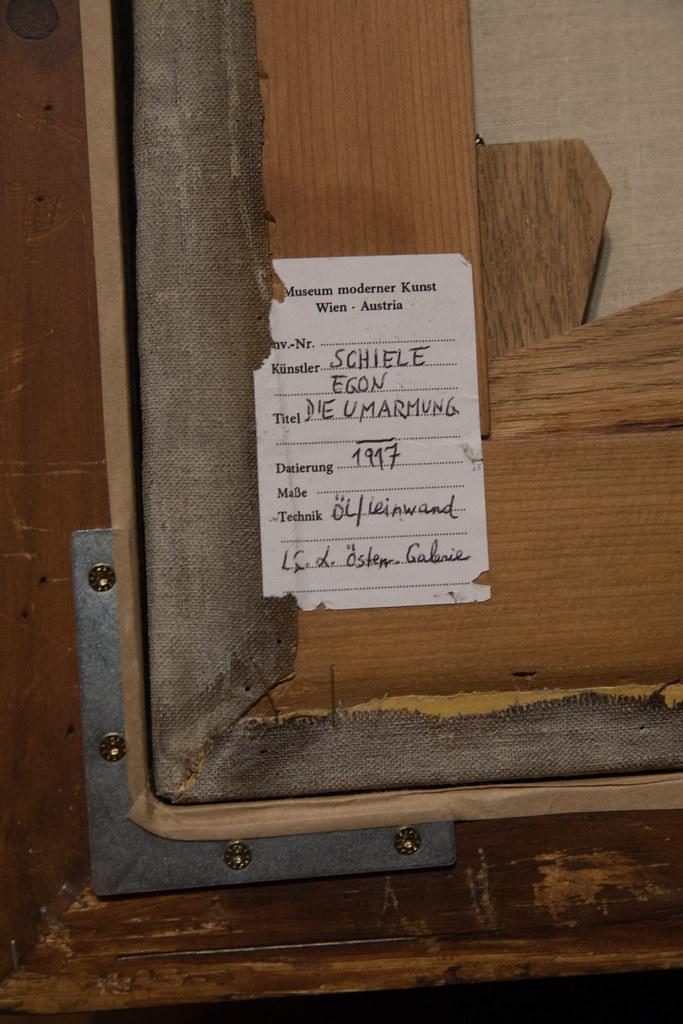 Museum moderner Kunst
Wien · Austria
nv.-Nr.
Künstler SCHIELE
EGON
Titel DIE UMARMUNG
Datierung 1917
Maße
Technik Öl/Leinwand
Österr. Galerie